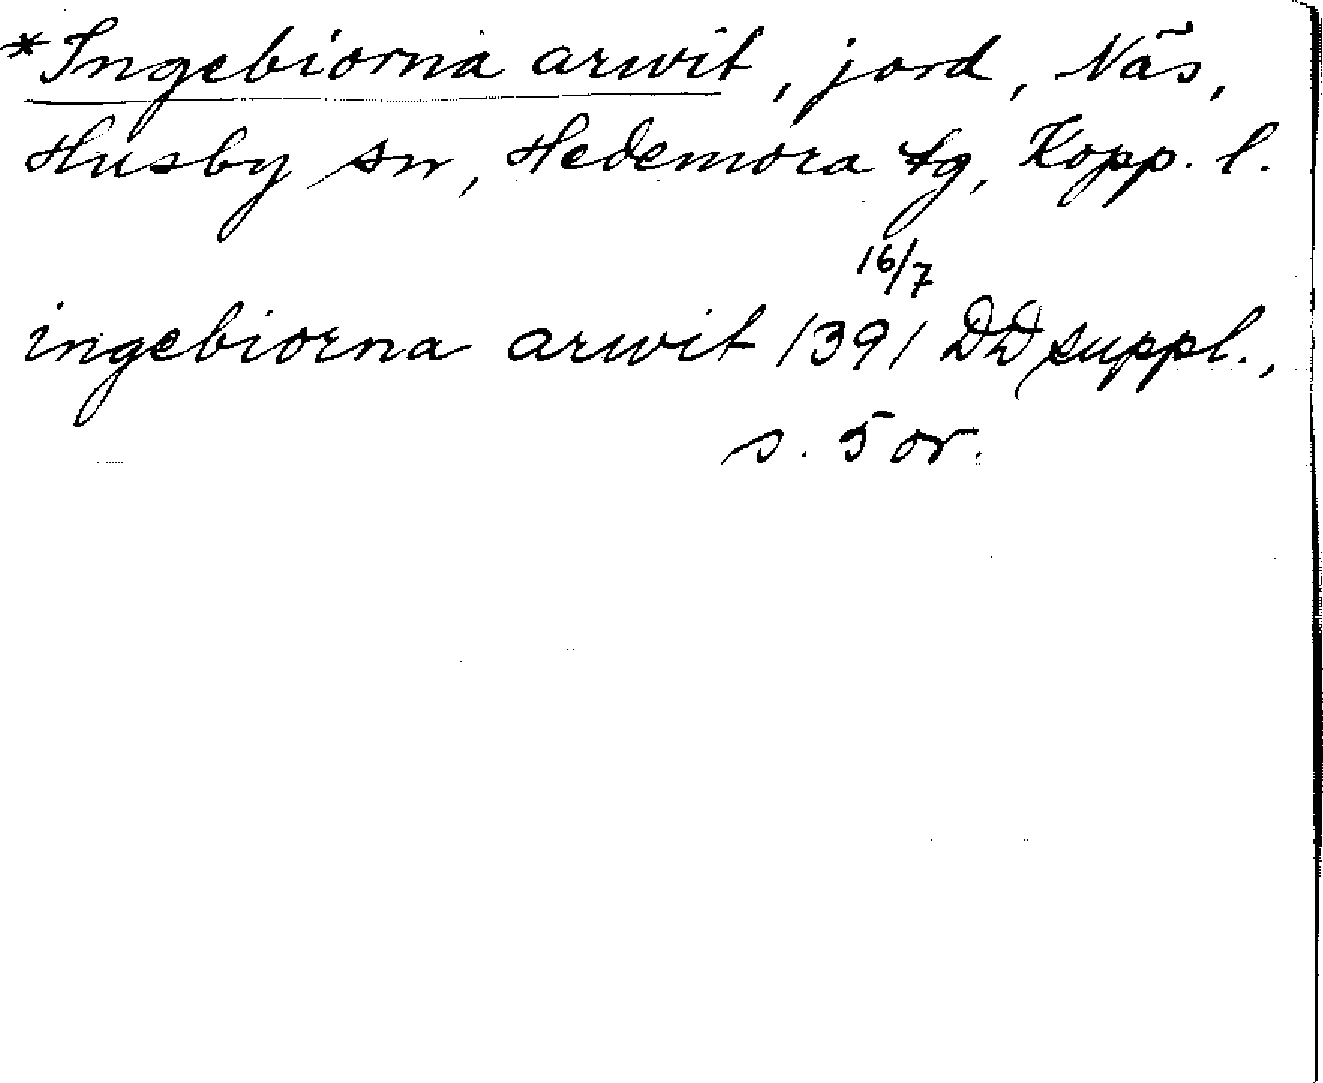 *Ingebiorna arwit, jord, Näs,
Husby sn, Hedemora tg, Kopp. l.
16/7
ingebiorna arwit 1391 DD suppl.,
s. 5 or.